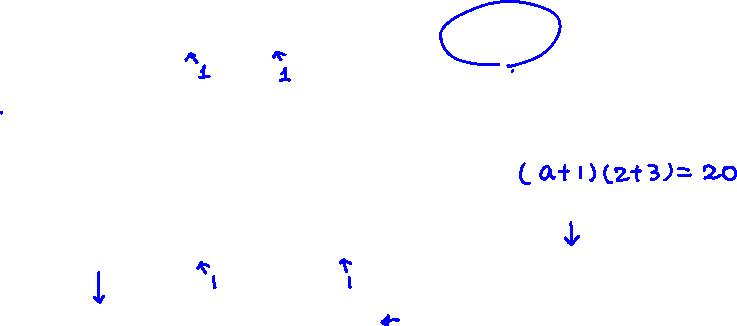 ↖1 ↖1
(a+1)(2+3)=20
↓
↓ ↖1 ↖1
←